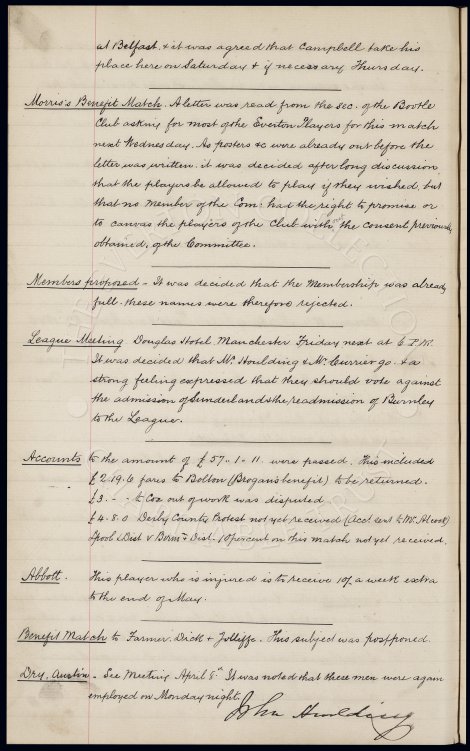 at Belfast & it was agreed that Campbell take his
place here on Saturday & if necessary Thursday.
Morris's Benefit Match. A letter was read from the sec. of the Bootle
Club asking for most of the Everton Players for this match
next Wednesday. As posters &c were already out before the
letter was written. it was decided after long discussion
that the players be allowed to play if they wished, but
that no member of the Com: had the right to promise or
to canvas the players of the Club with the consent previously
obtained, of the Committee.
Members proposed - It was decided that the Membership was already
full. these names were therefore rejected.
League Meeting Douglas Hotel. Manchester Friday next at 6 P.M.
It was decided that Mr. Houlding & Mr. Currier go. & a
strong feeling expressed that they should vote against
the admission of Sunderland & the readmission of Burnley
to the League.
Accounts to the amount of £57.. 1 - 11. were passed. This included
£2.19.6 fares to Bolton (Brogans benefit) to be returned.
£3. - - to Cox out of work was disputed
£4.8.0 Derby County Protest not yet received (Acct sent to Mr. Alcock)
L'pool & Dist v Birm: & Dist. 10 percent on this match not yet received.
Abbott. This player who is injured is to receive 10/ a week extra
to the end of May.
Benefit Match to Farmer, Dick & Jolliffe. This subject was postponed.
Dry. Austin - See Meeting April 8th. It was noted that these men were again
employed on Monday night.
John Houlding